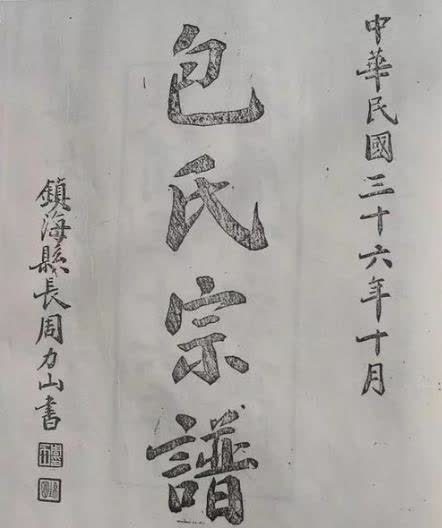 中華民國三十六年十月
包氏宗譜
鎮海縣長周力山書